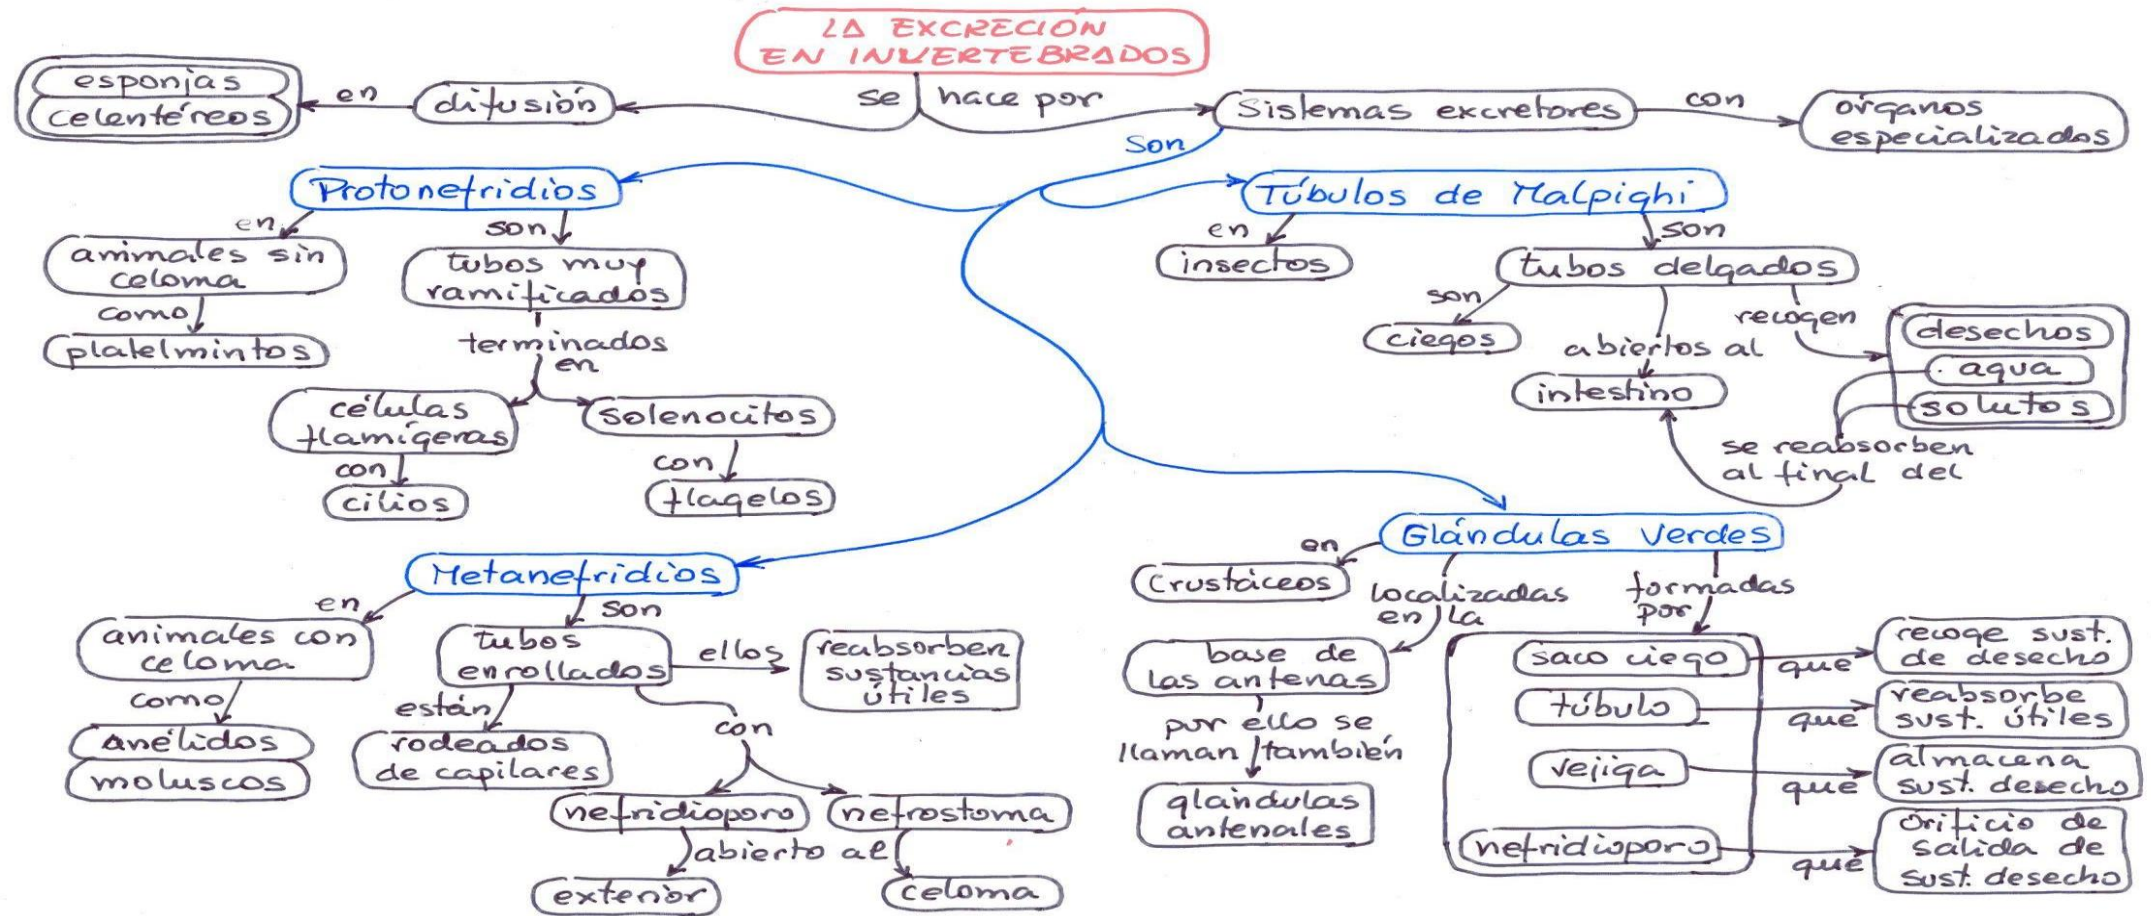 LA EXCRECIÓN
EN INVERTEBRADOS
se hace por
difusión
en
esponjas
celentéreos
Sistemas excretores
con
órganos
especializados
Son
Protonefridios
en
animales sin
celoma
como
platelmintos
son
tubos muy
ramificados
terminados
en
células
flamígeras
con
cilios
solenocitos
con
flagelos
Túbulos de Malpighi
en
insectos
son
tubos delgados
son
ciegos
abiertos al
intestino
recogen
desechos
agua
solutos
se reabsorben
al final del
Metanefridios
en
animales con
celoma
como
anélidos
moluscos
son
tubos
enrollados
ellos
reabsorben
sustancias
útiles
están
rodeados
de capilares
con
nefridioporo
nefrostoma
abierto al
exterior
celoma
Glándulas Verdes
en
Crustáceos
localizadas
en la
base de
las antenas
por ello se
llaman también
glándulas
antenales
formadas
por
saco ciego
que
recoge sust.
de desecho
túbulo
que
reabsorbe
sust. útiles
vejiga
que
almacena
sust. desecho
nefridioporo
que
Orificio de
salida de
sust. desecho